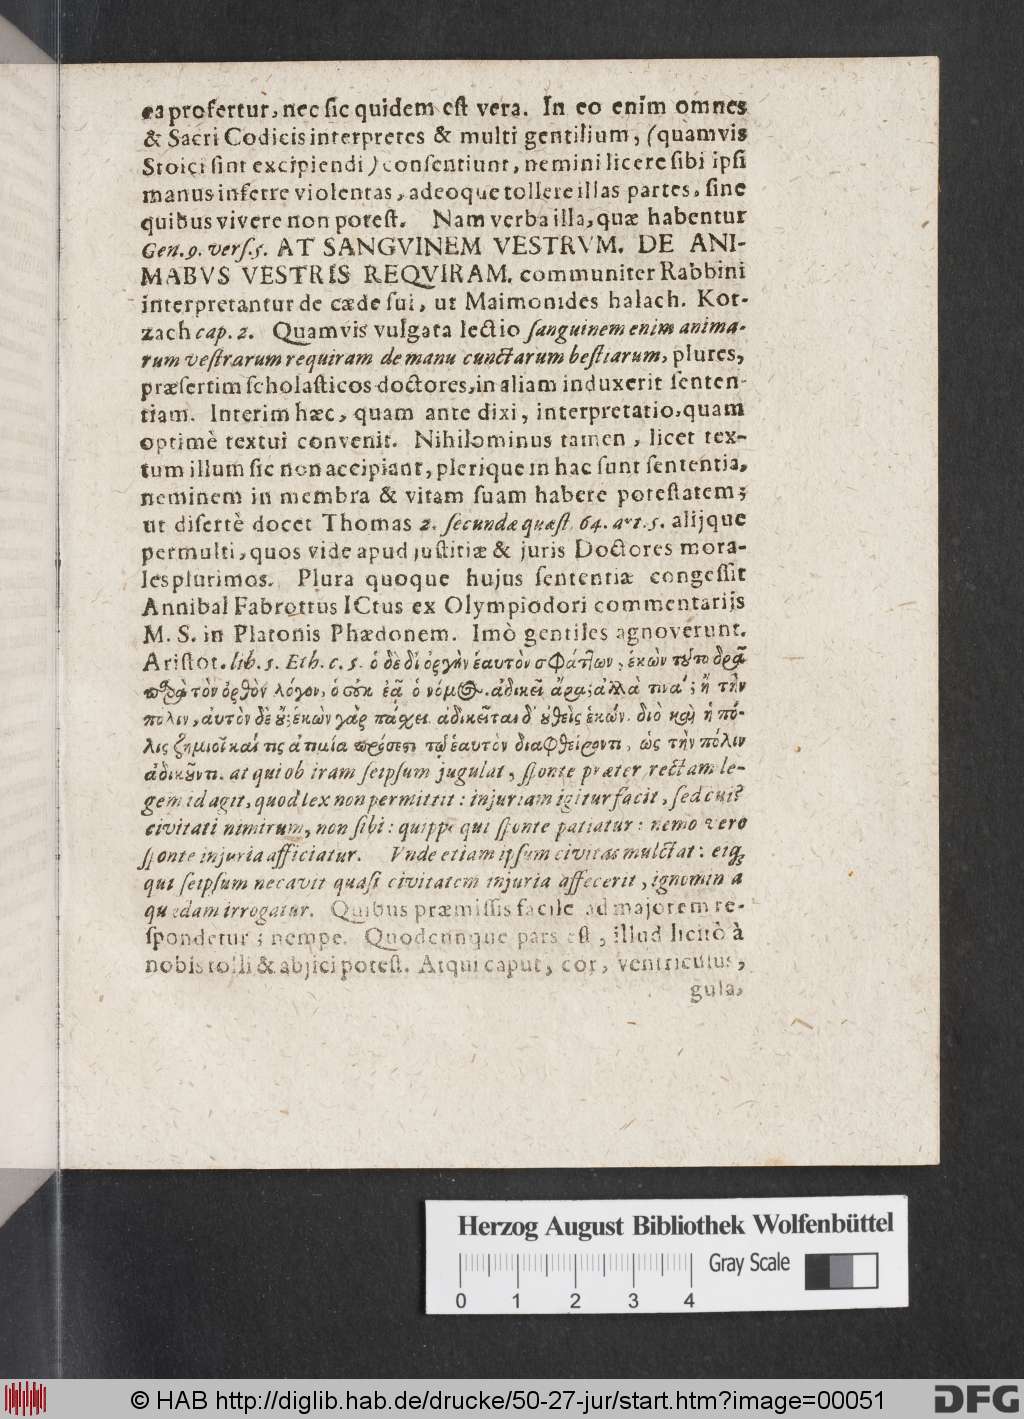 ea profertur, nec sic quidem est vera. In eo enim omnes
& Sacri Codicis interpretes & multi gentilium, (quamvis
Stoici sint excipiendi) consentiunt, nemini licere sibi ipsi
manus inferre violentas, adeoque tollere illas partes, sine
quibus vivere non potest. Nam verba illa, quæ habentur
Gen. 9. vers. 5. AT SANGVINEM VESTRVM. DE ANI-
MABVS VESTRIS REQVIRAM. communiter Rabbini
interpretantur de cæde sui, ut Maimonides halach. Kot-
zach cap. 2. Quamvis vulgata lectio sanguinem enim anima-
rum vestrarum requiram de manu cunctarum bestiarum, plures,
præsertim scholasticos doctores, in aliam induxerit senten-
tiam. Interim hæc, quam ante dixi, interpretatio, quam
optimè textui convenit. Nihilominus tamen, licet tex-
tum illum sic non accipiant, plerique in hac sunt sententia,
neminem in membra & vitam suam habere potestatem;
ut disertè docet Thomas 2. secundæ quæst. 64. art. 5. alijque
permulti, quos vide apud justitiæ & juris Doctores mora-
les plurimos. Plura quoque hujus sententiæ congessit
Annibal Fabrottus ICtus ex Olympiodori commentariis
M. S. in Platonis Phædonem. Imò gentiles agnoverunt.
Aristot. lib. 5. Eth. c. 5. ὁ δὲ δι' ὀργὴν ἑαυτὸν σφάτλων, ἑκὼν τȣ͂το δρᾷ
παρὰ τὸν ὀρθὸν λόγον, ὃ οὐκ ἐᾷ ὁ νόμος. ἀδικεῖ ἄρα; ἀλλὰ τινα; ἢ τὴν
πόλιν, αὑτὸν δὲ ȣ̓; ἑκὼν γὰρ πάχει. ἀδικεῖται δ' ȣ̓θεὶς ἑκών. διὸ καὶ ἡ πό-
λις ζημιοῖ καί τις ἀτιμία πρόσεστι τῷ ἑαυτὸν διαφθείροντι, ὡς τὴν πόλιν
ἀδικȣ͂ντι. at qui ob iram seipsum jugulat, sponte præter rectam le-
gem id agit, quod lex non permittit: injuriam igitur facit, sed cui?
civitati nimirum, non sibi: quippe qui sponte patiatur: nemo vero
sponte injuria afficiatur. Vnde etiam ipsum civitas mulctat: eiq;
qui seipsum necavit quasi civitatem injuria affecerit, ignomin a
quædam irrogatur. Quibus præmissis facile ad majorem re-
spondetur; nempe. Quodcunque pars est, illud licitò à
nobis tolli & abjici potest. Atqui caput, cor, ventriculus,
gula,
Herzog August Bibliothek Wolfenbüttel
Gray Scale
0 1 2 3 4
© HAB http://diglib.hab.de/drucke/50-27-jur/start.htm?image=00051
DFG